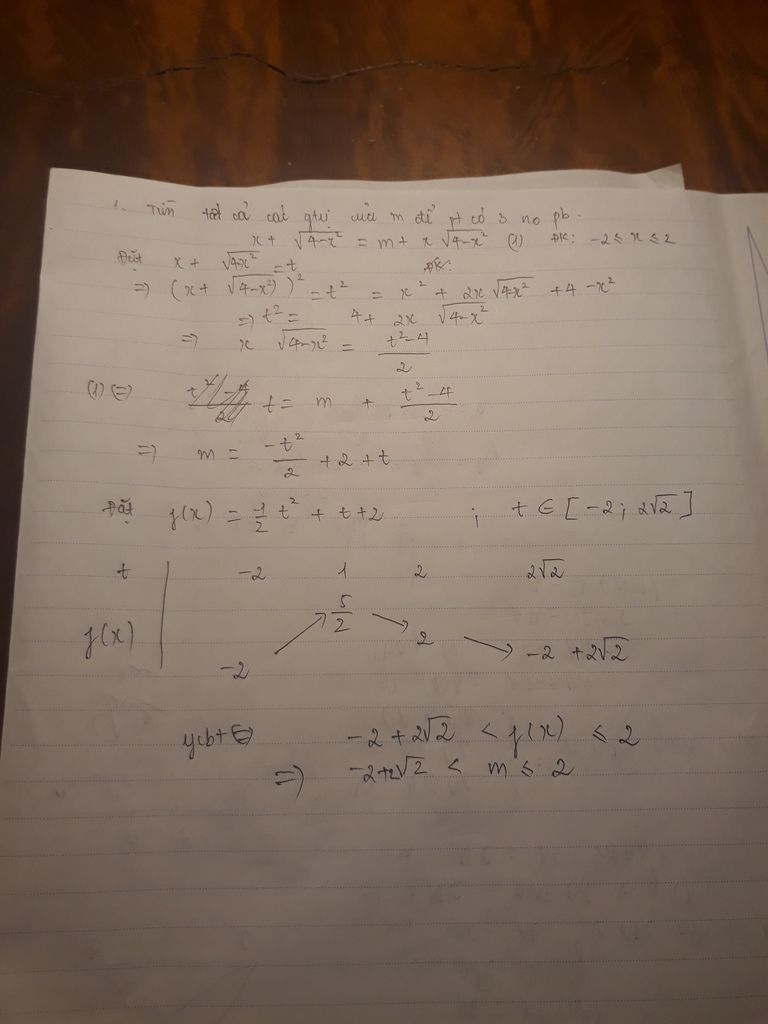 1. Tìm tất cả các gtrị của m để pt có 3 no pb.
x + √(4-x²) = m + x √(4-x²) (1) ĐK: -2 ≤ x ≤ 2
Đặt x + √(4-x²) = t ĐK:
=> (x + √(4-x²))² = t² = x² + 2x √(4-x²) + 4 - x²
=> t² = 4 + 2x √(4-x²)
=> x √(4-x²) = (t²-4)/2
(1) (=) t = m + (t²-4)/2
=> m = -t²/2 + 2 + t
Đặt f(x) = -1/2 t² + t + 2 ; t ∈ [-2; 2√2]
t -2 1 2 2√2
f(x) -2 ↗ 5/2 ↘ 2 ↘ -2 + 2√2
ycbt (=) -2 + 2√2 < f(x) ≤ 2
=> -2+2√2 < m ≤ 2